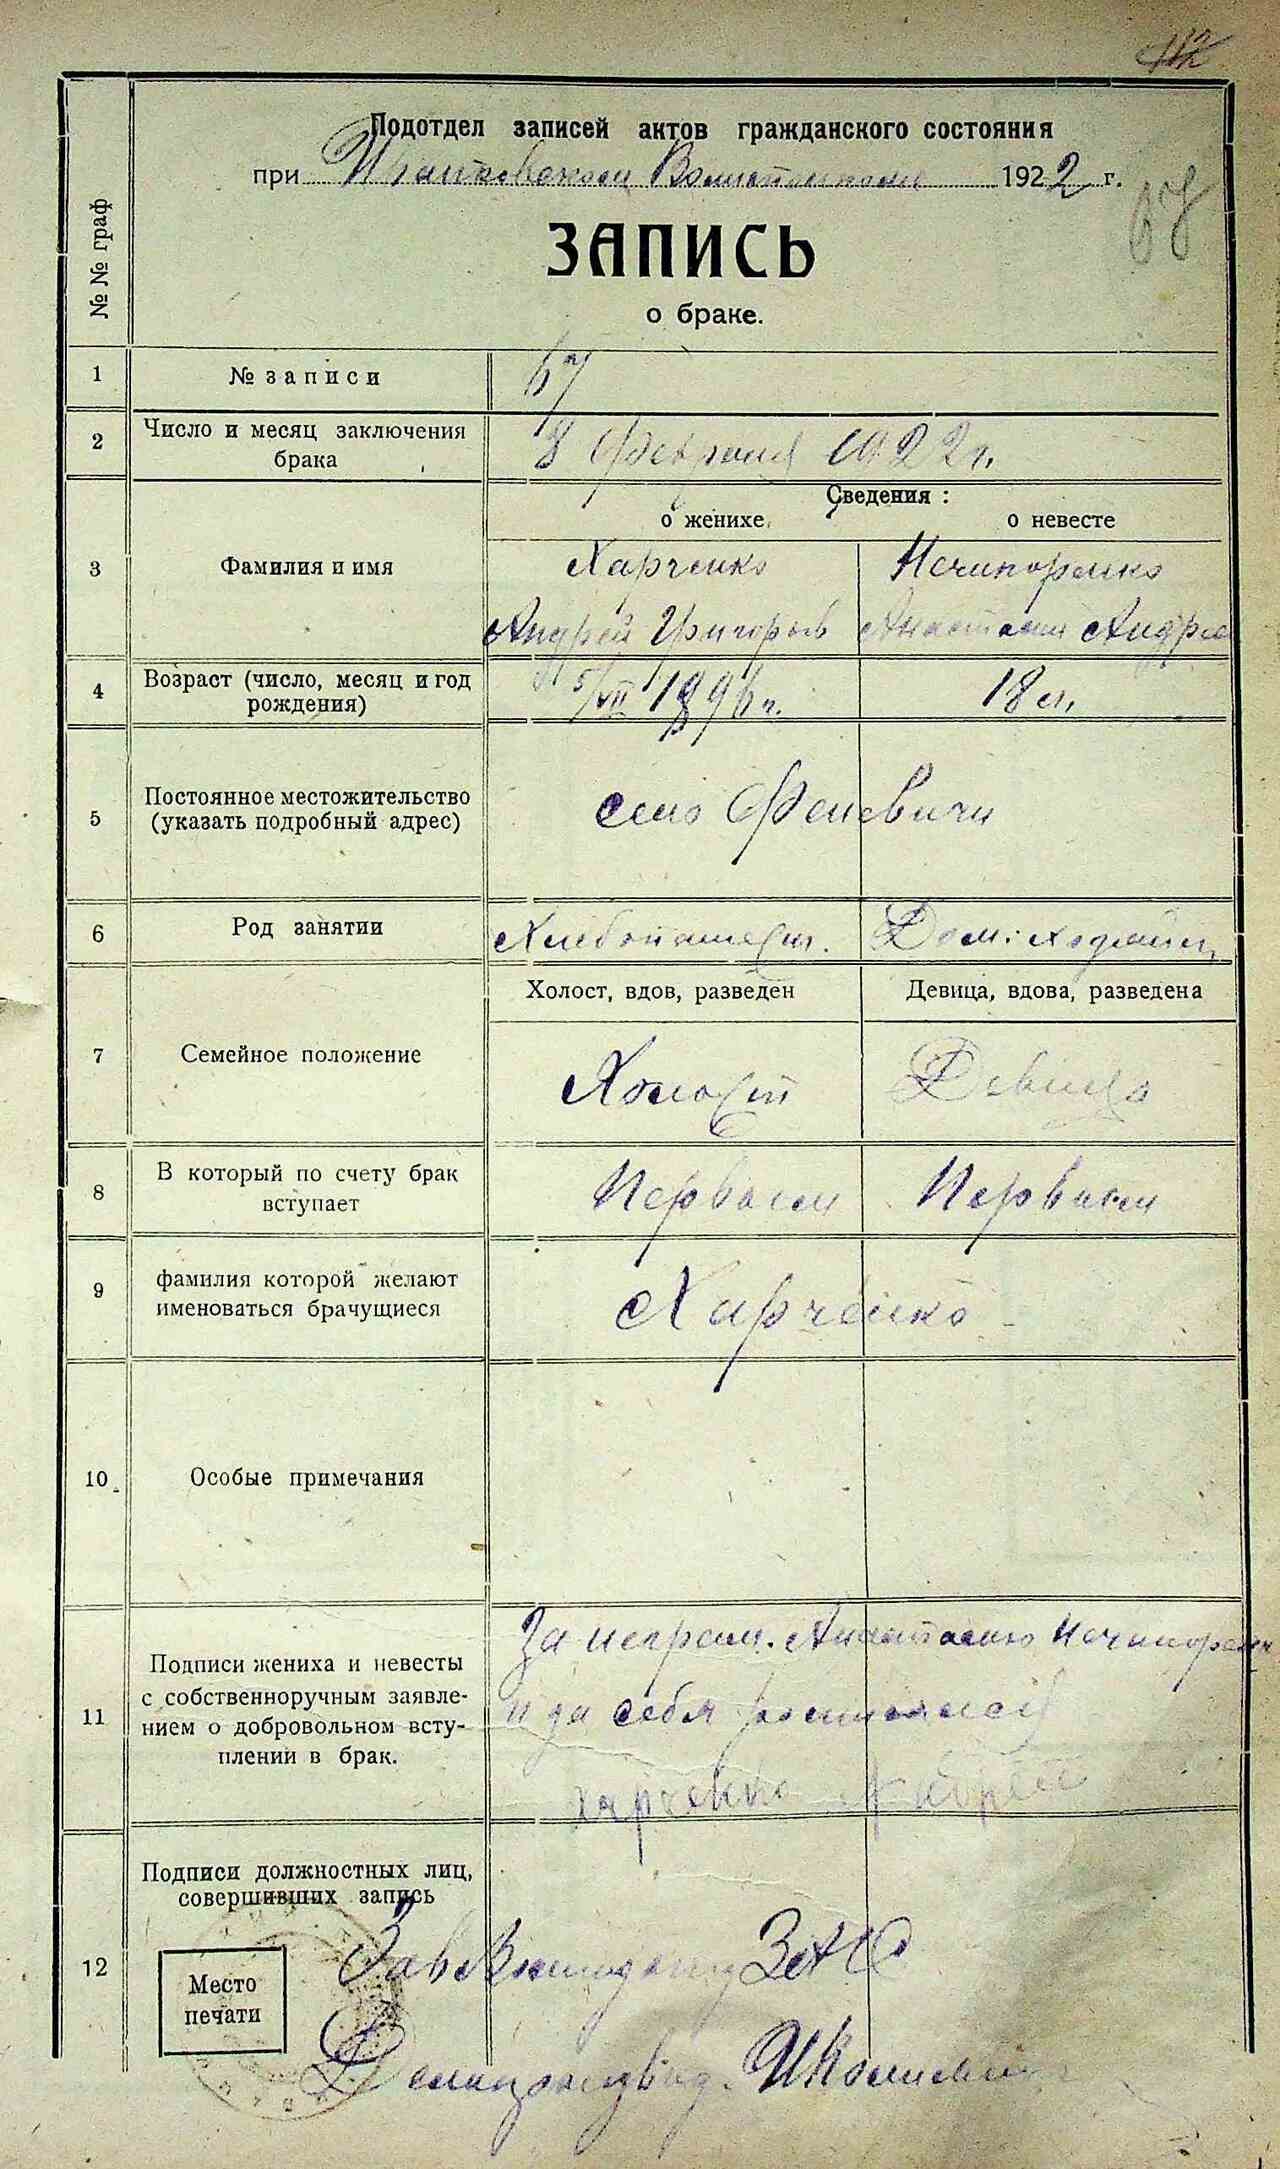 112
Подотдел записей актов гражданского состояния
при Иванковском Волисполкоме 1922 г.
67
ЗАПИСЬ
о браке.
№ № граф
1 № записи 67
2 Число и месяц заключения
брака
8 Февраля 1922 г.
Сведения:
о женихе о невесте
3 Фамилия и имя
Харченко Нечипоренко
Андрей Григорьев Анастасия Андре
4 Возраст (число, месяц и год
рождения)
5/VII 1896 г. 18 л.
5 Постоянное местожительство
(указать подробный адрес)
село Феневичи
6 Род занятии
Хлебопашест. Дом: хозяйка
Холост, вдов, разведен Девица, вдова, разведена
7 Семейное положение
Холост Девица
8 В который по счету брак
вступает
Первым Первым
9 фамилия которой желают
именоваться брачущиеся
Харченко
10 Особые примечания
11 Подписи жениха и невесты
с собственноручным заявле-
нием о добровольном всту-
плении в брак.
За неграм. Анастасию Нечипоренк
и за себя росписался
харченко Андрей
12 Подписи должностных лиц,
совершивших запись
Место
печати
Зав ЗАГС